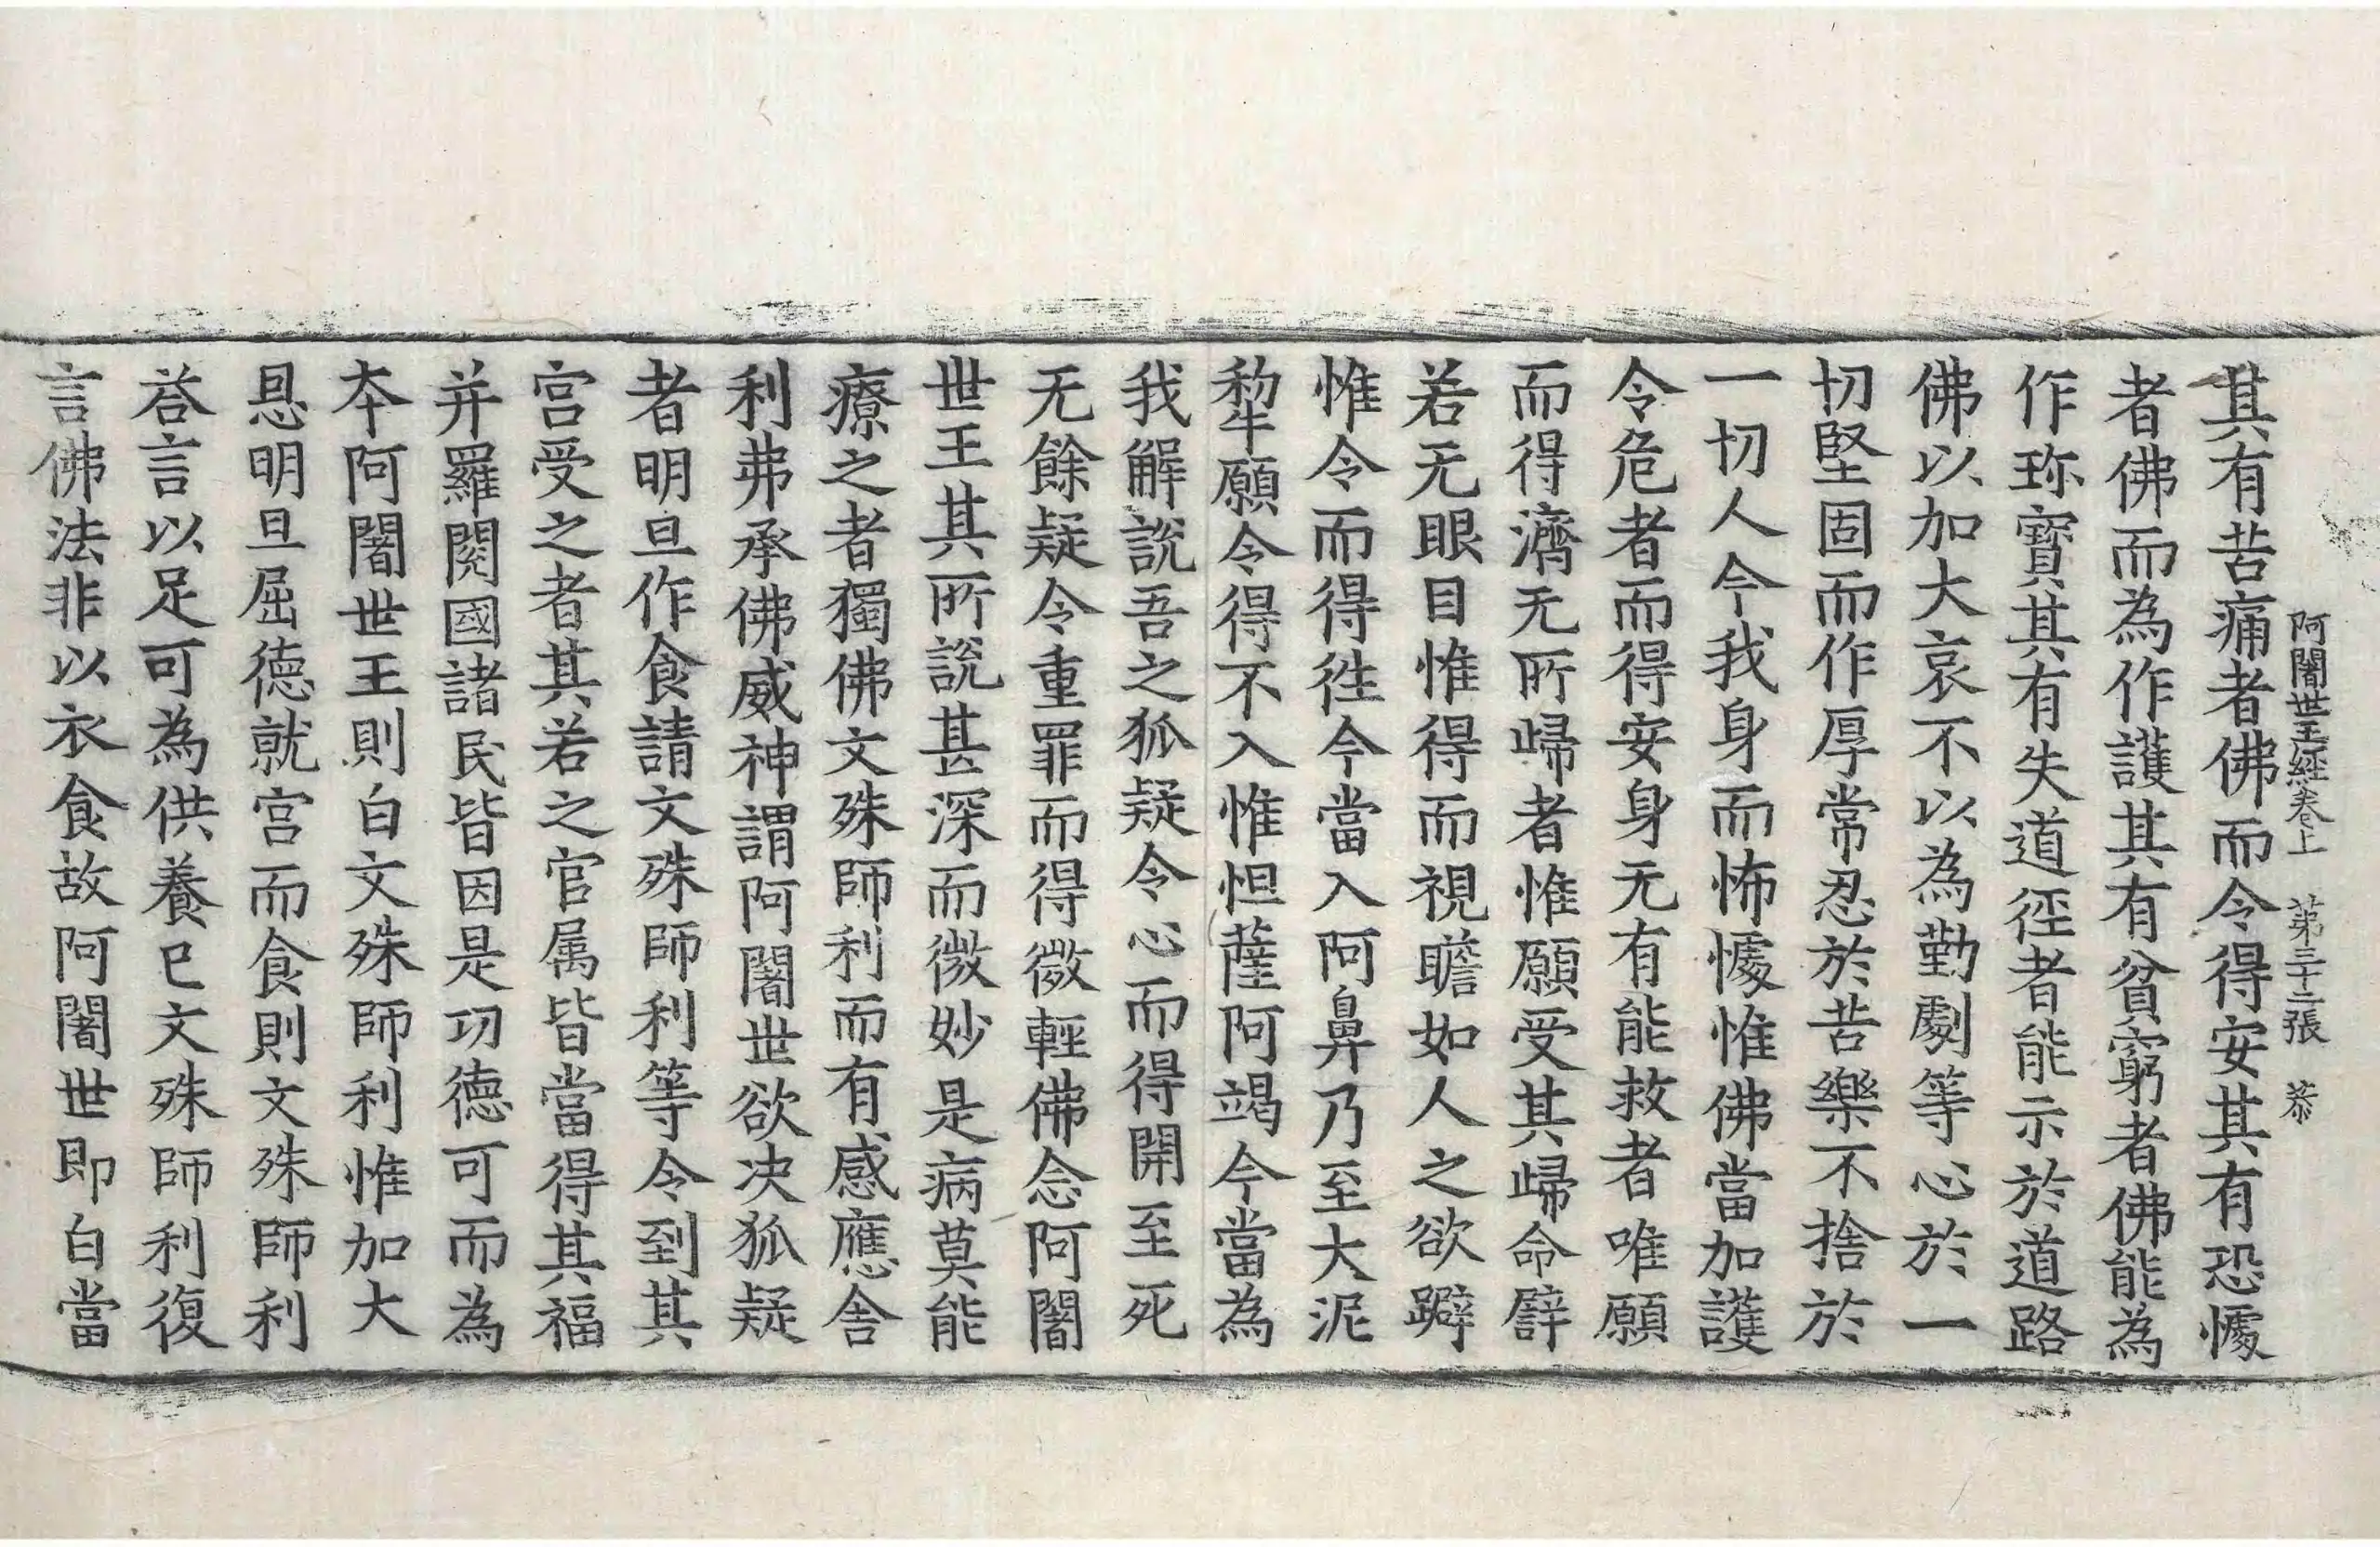 阿闍世王經卷上　第三十二張　恭
其有苦痛者佛而令得安其有恐懅
者佛而為作護其有貧窮者佛能為
作珎寶其有失道徑者能示於道路
佛以加大哀不以為勤劇等心於一
切堅固而作厚常忍於苦樂不捨於
一切人今我身而怖懅惟佛當加護
令危者而得安身无有能救者唯願
而得濟无所歸者惟願受其歸命譬
若无眼目惟得而視瞻如人之欲躃
惟令而得徃今當入阿鼻乃至大泥
犂願令得不入惟怛薩阿竭今當為
我解說吾之狐疑令心而得開至死
无餘疑令重罪而得微輕佛念阿闍
世王其所說甚深而微妙是病莫能
療之者獨佛文殊師利而有感應舍
利弗承佛威神謂阿闍世欲决狐疑
者明旦作食請文殊師利等令到其
宮受之者其若之官属皆當得其福
并羅閱國諸民皆因是功德可而為
夲阿闍世王則白文殊師利惟加大
恩明旦屈德就宮而食則文殊師利
荅言以足可為供養已文殊師利復
言佛法非以衣食故阿闍世即白當